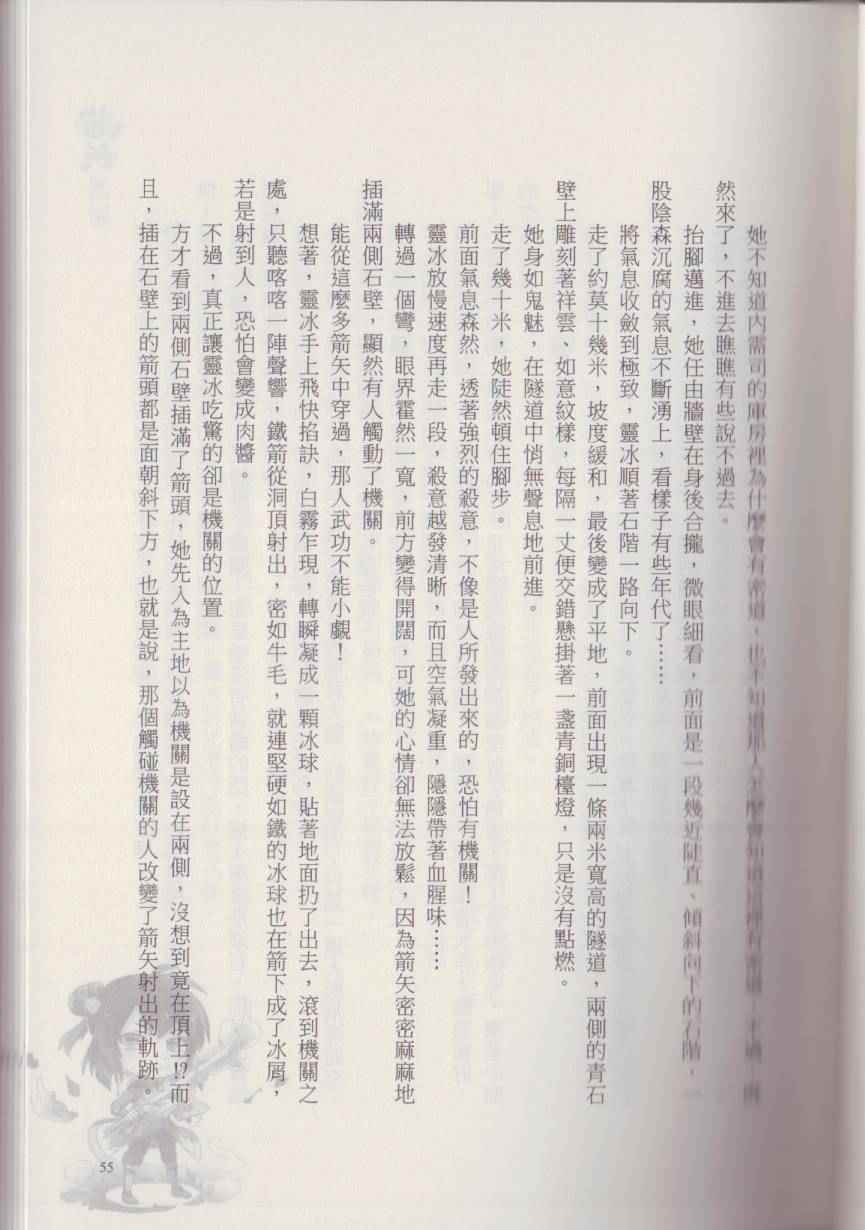 她不知道內需司的庫房裡為什麼會有密道，也不知道那人
然來了，不進去瞧瞧有些說不過去。
抬腳邁進，她任由牆壁在身後合攏，微眼細看，前面是一段幾近陡直、傾斜向下的石階，一
股陰森沉腐的氣息不斷湧上，看樣子有些年代了……
將氣息收斂到極致，靈冰順著石階一路向下。
走了約莫十幾米，坡度緩和，最後變成了平地，前面出現一條兩米寬高的隧道，兩側的青石
壁上雕刻著祥雲、如意紋樣，每隔一丈便交錯懸掛著一盞青銅檯燈，只是沒有點燃。
她身如鬼魅，在隧道中悄無聲息地前進。
走了幾十米，她陡然頓住腳步。
前面氣息森然，透著強烈的殺意，不像是人所發出來的，恐怕有機關！
靈冰放慢速度再走一段，殺意越發清晰，而且空氣凝重，隱隱帶著血腥味……
轉過一個彎，眼界霍然一寬，前方變得開闊，可她的心情卻無法放鬆，因為箭矢密密麻麻地
插滿兩側石壁，顯然有人觸動了機關。
能從這麼多箭矢中穿過，那人武功不能小覷！
想著，靈冰手上飛快掐訣，白霧乍現，轉瞬凝成一顆冰球，貼著地面扔了出去，滾到機關之
處，只聽喀喀一陣聲響，鐵箭從洞頂射出，密如牛毛，就連堅硬如鐵的冰球也在箭下成了冰屑，
若是射到人，恐怕會變成肉醬。
不過，真正讓靈冰吃驚的卻是機關的位置。
方才看到兩側石壁插滿了箭頭，她先入為主地以為機關是設在兩側，沒想到竟在頂上!?而
且，插在石壁上的箭頭都是面朝斜下方，也就是說，那個觸碰機關的人改變了箭矢射出的軌跡。
55